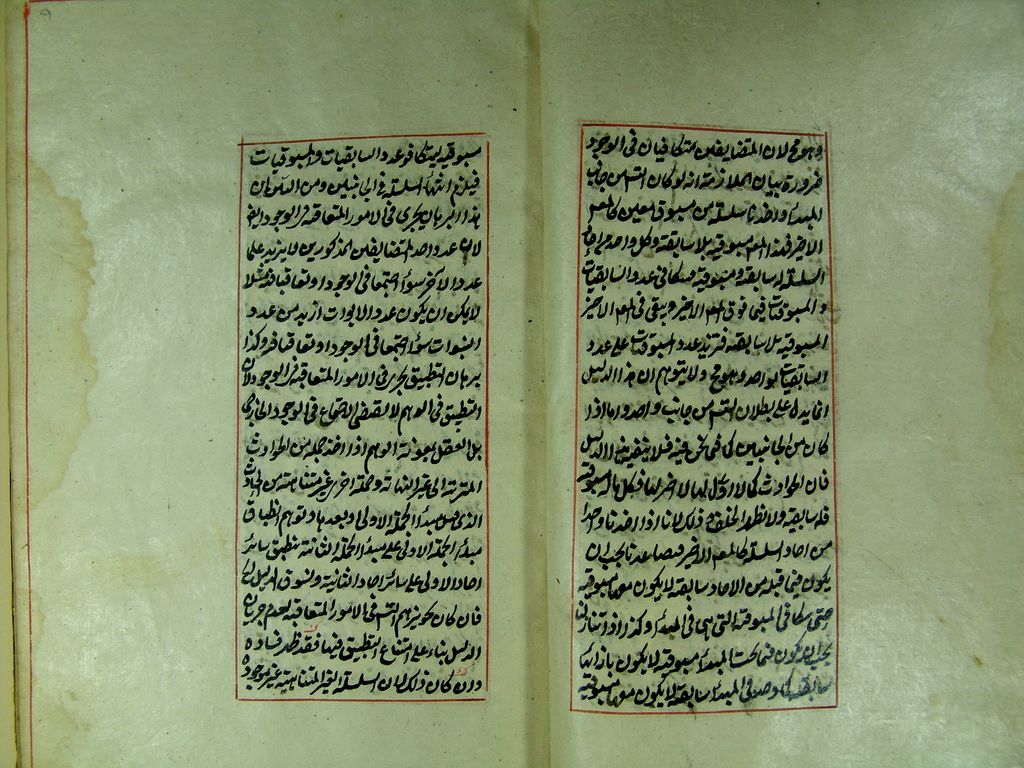 وهو مح لان المتضايفين متكافيان فى الوجود
ضرورة بيان الملازمة انه لو كان التس من جانب
المبدأ واخذنا سلسلة من مسبوق معين كالمعلول
الاخير فهذا المعلول مسبوقية بلا سابقية وكل واحد من احاد
السلسلة له سابقية ومسبوقية فيتكافى عدد السابقيات
والمسبوقيات فيما فوق المعلول الاخير ويبقى فى المعلول الاخير
المسبوقية بلا سابقية فتزيد عدد المسبوقيات على عدد
السابقيات بواحد وهو مح ولا يتوهم ان هذا الدليل
انما يدل على بطلان التس من جانب واحد واما اذا
كان من الجانبين كما فى ما نحن فيه فلا ينتهض هذا الدليل
فان الحوادث كما لا اول لها لا اخر لها فكل ما له مسبوقية
فله سابقية ولا يظهر الخلف وذلك لانا اذا اخذنا واحدا
من احاد السلسلة كالمعلول الاخير فيصاعدنا يجب ان
يكون فيما قبله من الاحاد سابقية لا يكون معها مسبوقية
حتى يتكافى المسبوقية التى هى فى المبدأ وكذا اذا تنازلنا
يجب ان يكون فيما تحت المبدأ مسبوقية لا يكون بازائها
سابقية كما وجد فى المبدأ سابقية لا يكون معها مسبوقية
مسبوقية ليتكافى عدد السابقيات والمسبوقيات
فيلزم انتهاء السلسلة فى الجانبين ومن
هذا البرهان يجرى فى الامور المتعاقبة فى الوجود ايضا
لان عدد احد المتضايفين المذكورين لا يزيد على
عدد الآخر سواء اجتمعا فى الوجود او تعاقبا فيه مثلا
لا يمكن ان يكون عدد الابوات ازيد من عدد
البنوات سواء اجتمعا فى الوجود او تعاقبا فيه وكذا
برهان التطبيق يجرى فى الامور المتعاقبة فى الوجود لان
التطبيق فى الوهم لا يقتضى الاجتماع فى الوجود الخارجى
بل العقل بمعونة الوهم اذا اخذ جملة من الحوادث
المترتبة الى غير النهاية وجملة اخرى غير متناهية من الحادث
الذى قبل مبدأ الجملة الاولى وبعدها وتوهم انطباق
مبدأ الجملة الاولى على مبدأ الجملة الثانية ينطبق سائر
احاد الاولى على سائر احاد الثانية ونسوق الدليل الخ
فان كان تجويزهم التس فى الامور المتعاقبة لعدم جريان
الدليل بناء على امتناع التطبيق فيها فقد ظهر فساده
وان كان ذلك لان السلسلة الغير المتناهية غير موجودة